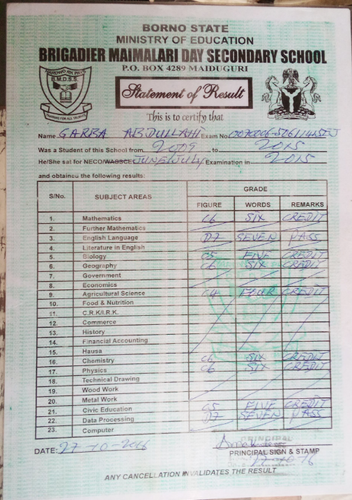 BORNO STATE
MINISTRY OF EDUCATION
BRIGADIER MAIMALARI DAY SECONDARY SCHOOL
P.O. BOX 4289 MAIDUGURI
Statement of Result
This is to certify that
Name GARBA ABDULLAHI Exam No.
Was a Student of this School from 2009 to 2015
He/She sat for NECO/WABSCE JUNE/JULY Examination in 2015
and obtained the following results:
S/No. SUBJECT AREAS GRADE
FIGURE WORDS REMARKS
1. Mathematics C6 SIX CREDIT
2. Further Mathematics
3. English Language D7 SEVEN PASS
4. Literature in English
5. Biology C5 FIVE CREDIT
6. Geography C6 SIX CREDIT
7. Government
8. Economics
9. Agricultural Science C4 FOUR CREDIT
10. Food & Nutrition
11. C.R.K/I.R.K.
12. Commerce
13. History
14. Financial Accounting
15. Hausa
16. Chemistry C6 SIX CREDIT
17. Physics C6 SIX CREDIT
18. Technical Drawing
19. Wood Work
20. Metal Work
21. Civic Education C5 FIVE CREDIT
22. Data Processing D7 SEVEN PASS
23. Computer
PRINCIPAL
DATE: 27-10-2016 PRINCIPAL SIGN & STAMP
ANY CANCELLATION INVALIDATES THE RESULT